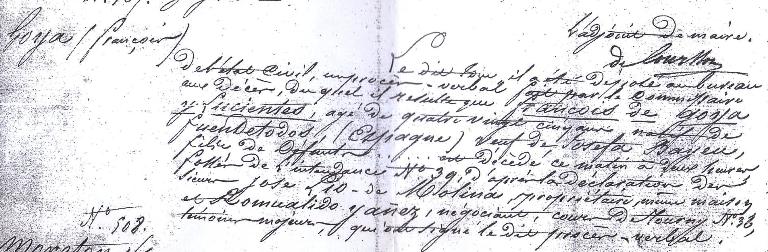 L'adjoint de maire.
Goya (François)
de Courthy
Le dit jour, il a été déposé au bureau
de l'état civil, un procès-verbal fait par le Commissaire
aux Décès, du quel il résulte que François de Goya
y Lucientes, agé de quatre vingt cinq ans natif de
fuendetodos, (Espagne) veuf de Josefa Bayeu,
fils de Défunts ..... est décédé ce matin à deux heures
fossés de l'intendance N° 39, d'après la déclaration des
sieurs José Pio de Molina, propriétaire, même maison
et Romualdo yañez, négociant, cours de tourny, N° 36,
témoins majeurs, qui ont signé le dit procès-verbal.
N° 508.